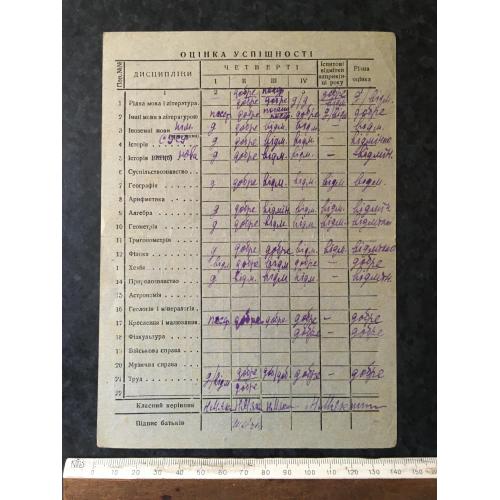 ОЦІНКА УСПІШНОСТІ
Пор. №№ ДИСЦИПЛІНИ ЧЕТВЕРТІ Іспитові відмітки наприкінці року Річна оцінка
I II III IV
1 Рідна мова і література. добре добре д/д добре відм.
2 Інші мови з літературою посер. добре добре добре
3 Іноземні мови нім. д добре відм. відм. — відм.
4 Історія СРСР д добре відм. відм. відм. відмінно
5 Історія нова д добре відм. відм. — відмін.
6 Суспільствознавство
7 Географія д добре відм. відм. відм. відм.
8 Арифметика
9 Алгебра д добре відмін. відм. відм. відмін.
10 Геометрія д добре відм. відм. відм. відмінно
11 Тригонометрія
12 Фізика д добре добре відм. відм. відмінно
Хемія від. добре відм. добре — добре
14 Природознавство д відм. відм. відм. — відмін.
15 Астрономія
16 Геологія і мінералогія
17 Креслення і малювання посер. добре добре добре — добре
18 Фізкультура добре — добре
19 Військова справа
20 Музична справа
21 Труд д/відм. добре добре добре — добре
добре
22
Класний керівник
Підпис батьків
0 10 20 30 40 50 60 70 80 90 100 110 120 130 140 150